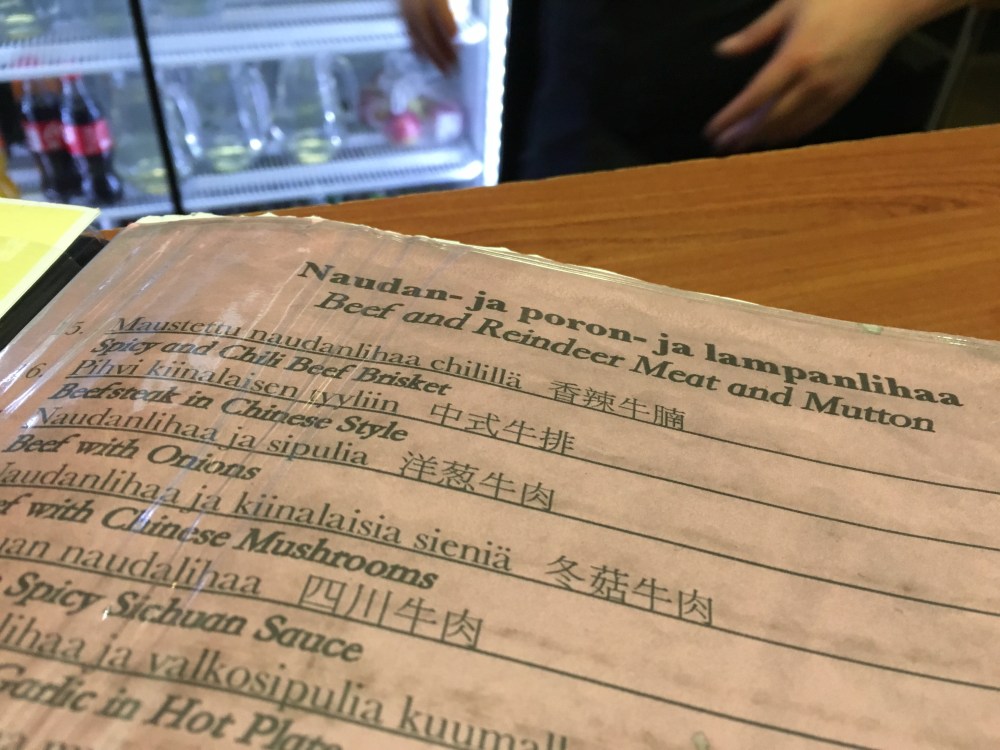 Naudan- ja poron- ja lampanlihaa
Beef and Reindeer Meat and Mutton
5. Maustettu naudanlihaa chilillä 香辣牛腩
Spicy and Chili Beef Brisket
6. Pihvi kiinalaisen tyyliin 中式牛排
Beefsteak in Chinese Style
Naudanlihaa ja sipulia 洋葱牛肉
Beef with Onions
Naudanlihaa ja kiinalaisia sieniä 冬菇牛肉
ef with Chinese Mushrooms
uan naudalihaa 四川牛肉
Spicy Sichuan Sauce
lihaa ja valkosipulia kuumall
Garlic in Hot Plate